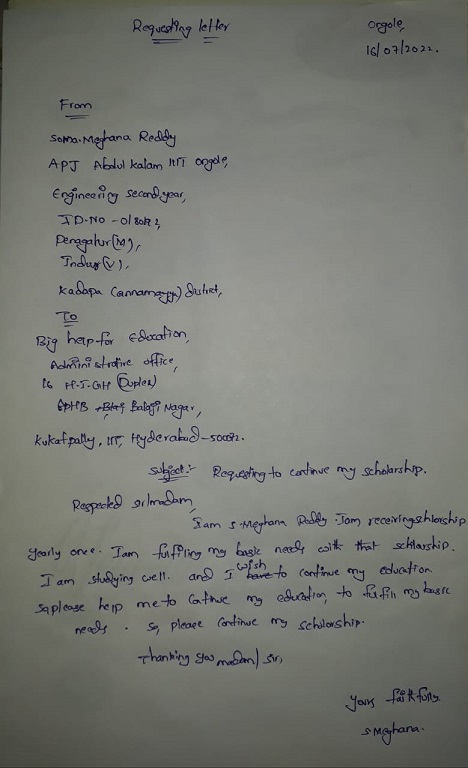 Requesting letter
Ongole,
16/07/2022.
From
Soma. Meghana Reddy
APJ Abdul Kalam IIIT Ongole,
Engineering second year,
ID-NO -
Penagalur(M),
Indlur(V),
Kadapa (annamayya) district,
To
Big help for Education,
Administrative office,
16 H.I.GH (Duplex)
Balaji Nagar,
Kukatpally, Hyderabad-
Subject:- Requesting to continue my scholarship.
Respected sir/madam,
I am S Meghana Reddy. I am receiving
yearly once. I am fulfiling my basic needs with that scholarship.
I am studying well. and I wish to continue my education.
So, please help me to continue my education, to fulfill my basic
needs. So, please continue my scholarship.
Thanking you madam/sir,
yours faithfully
S Meghana.